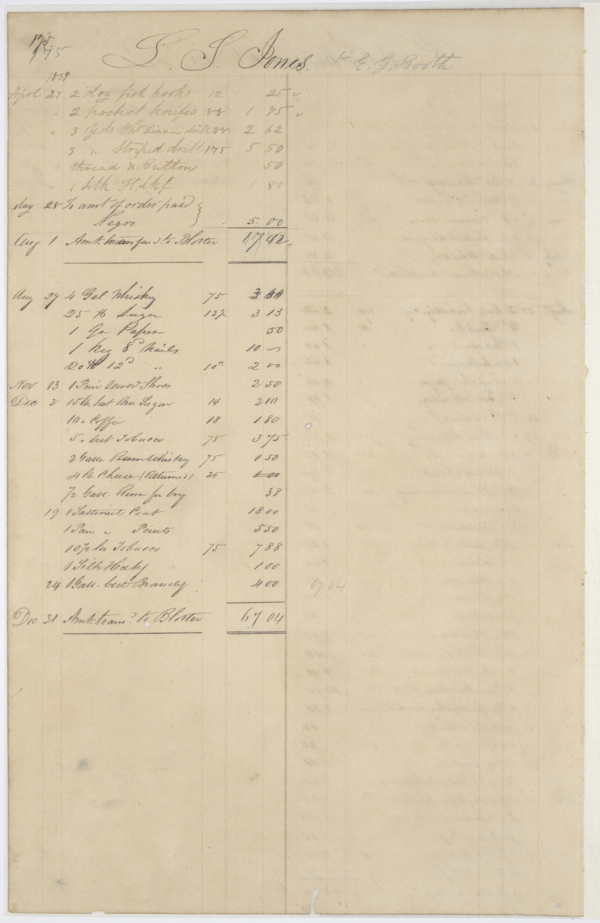 175
L. S. Jones. to E. G. Booth
1839
April 27 2 dog fish hooks 12 25
" 2 pocket knifes 88 1 75
" 3 Yds Wht Linnen drill 88 2 62
3 " Striped drill 175 5 50
thread & Button 50
" 1 Silk Hdkf 1 80
May 28 To amt of order paid
Negro 5 00
Aug 1 Amt. transfrd to Blotter 17 42
Aug 29 4 Gal Whisky 75 3
25 lb Sugar 12½ 3 13
1 Qr Paper 50
1 Keg 8d Nails 10 "
20 lb 12d " 10c 2 00
Nov 13 1 Pair sewed Shoes 2 50
Dec 2 15 lb best Bro Sugar 14 2 10
10 " Coffe 18 1 80
5 " best Tobacco 75 3 75
2 Galls Whisky 75 1 50
4 lb Cheese (Returned) 25 1 00
½ Gall. Rum for boy 38
19 1 Sattinett Coat 18 00
1 Pair " Pants 5 50
10½ lbs Tobacco 75 7 88
1 Silk Hdkf 1 00
24 1 Gall. best Brandy 4 00 67 04
Dec 31 Amt. transd to Blotter 67 04